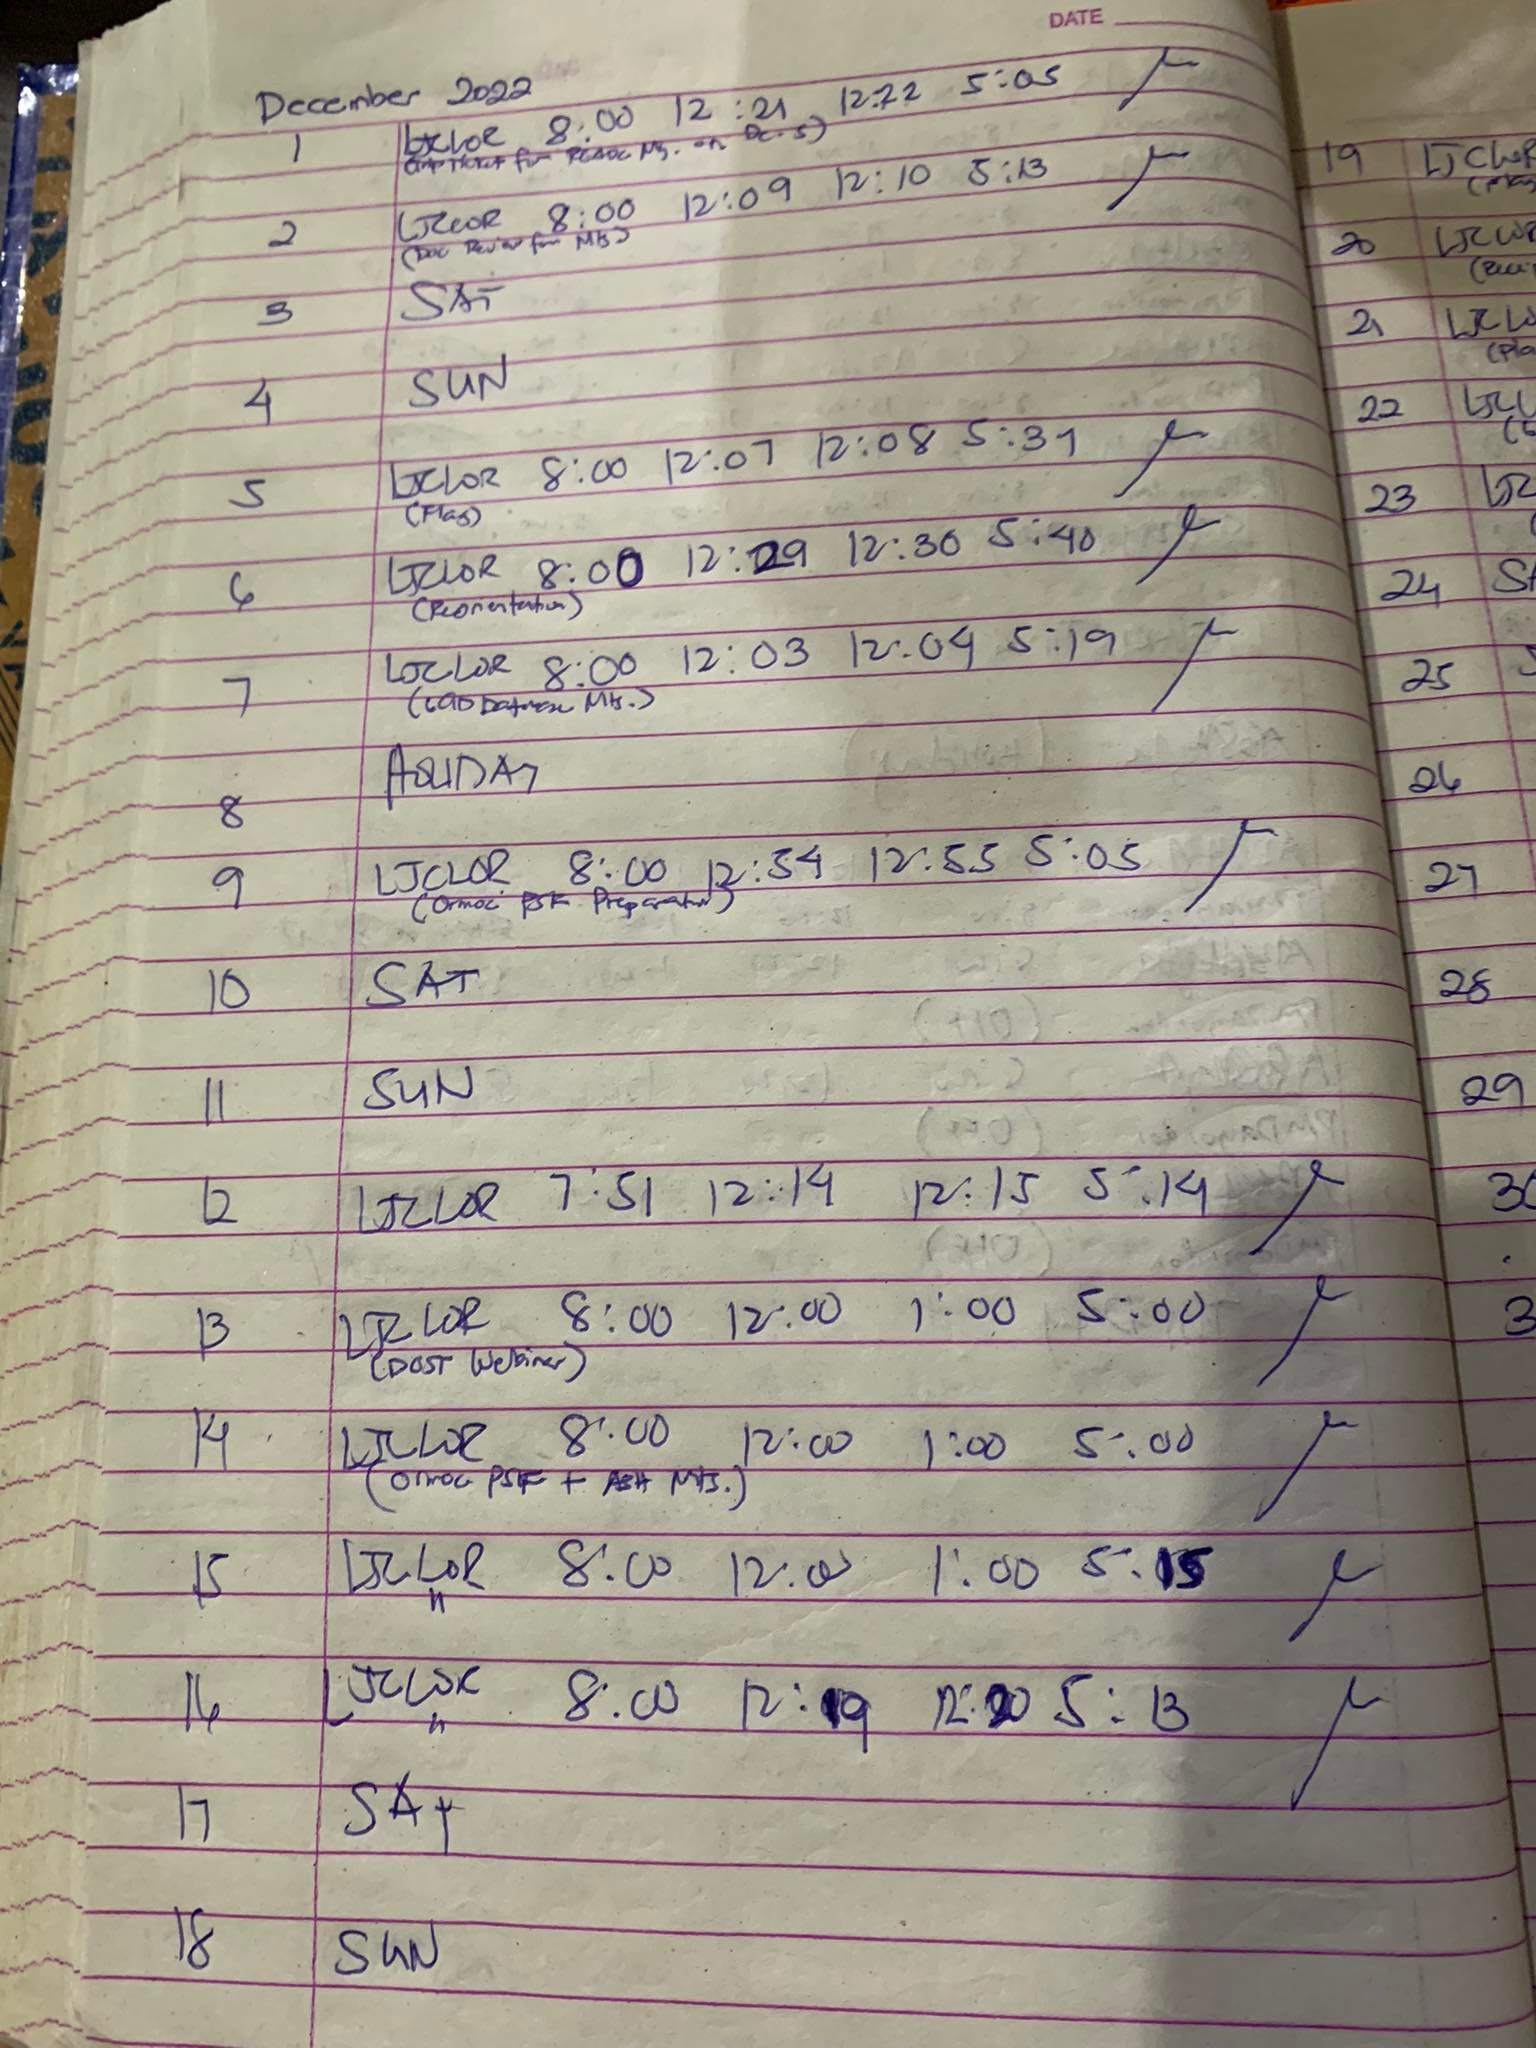 DATE
December 2022
1 LJCLOR 8:00 12:21 12:22 5:05
for Mtg. on Dec. 5)
2 LJCLOR 8:00 12:09 12:10 5:13
(Doc Review for Mtg)
3 SAT
4 SUN
5 LJCLOR 8:00 12:07 12:08 5:31
(Flag)
6 LJCLOR 8:00 12:29 12:30 5:40
(Reorientation)
7 LJCLOR 8:00 12:03 12:04 5:19
(Mtg.)
8 HOLIDAY
9 LJCLOR 8:00 12:54 12:55 5:05
(Ormoc PSF Preparation)
10 SAT
11 SUN
12 LJCLOR 7:51 12:14 12:15 5:14
13 LJCLOR 8:00 12:00 1:00 5:00
(DOST Webinar)
14 LJCLOR 8:00 12:00 1:00 5:00
(Ormoc PSF + Mtg.)
15 LJCLOR 8:00 12:00 1:00 5:15
"
16 LJCLOR 8:00 12:19 12:20 5:13
"
17 SAT
18 SUN
19 LJCLOR
20 LJCLOR
21 LJCLO
22 LJCL
23 LJC
24 SA
25
26
27
28
29
30
3